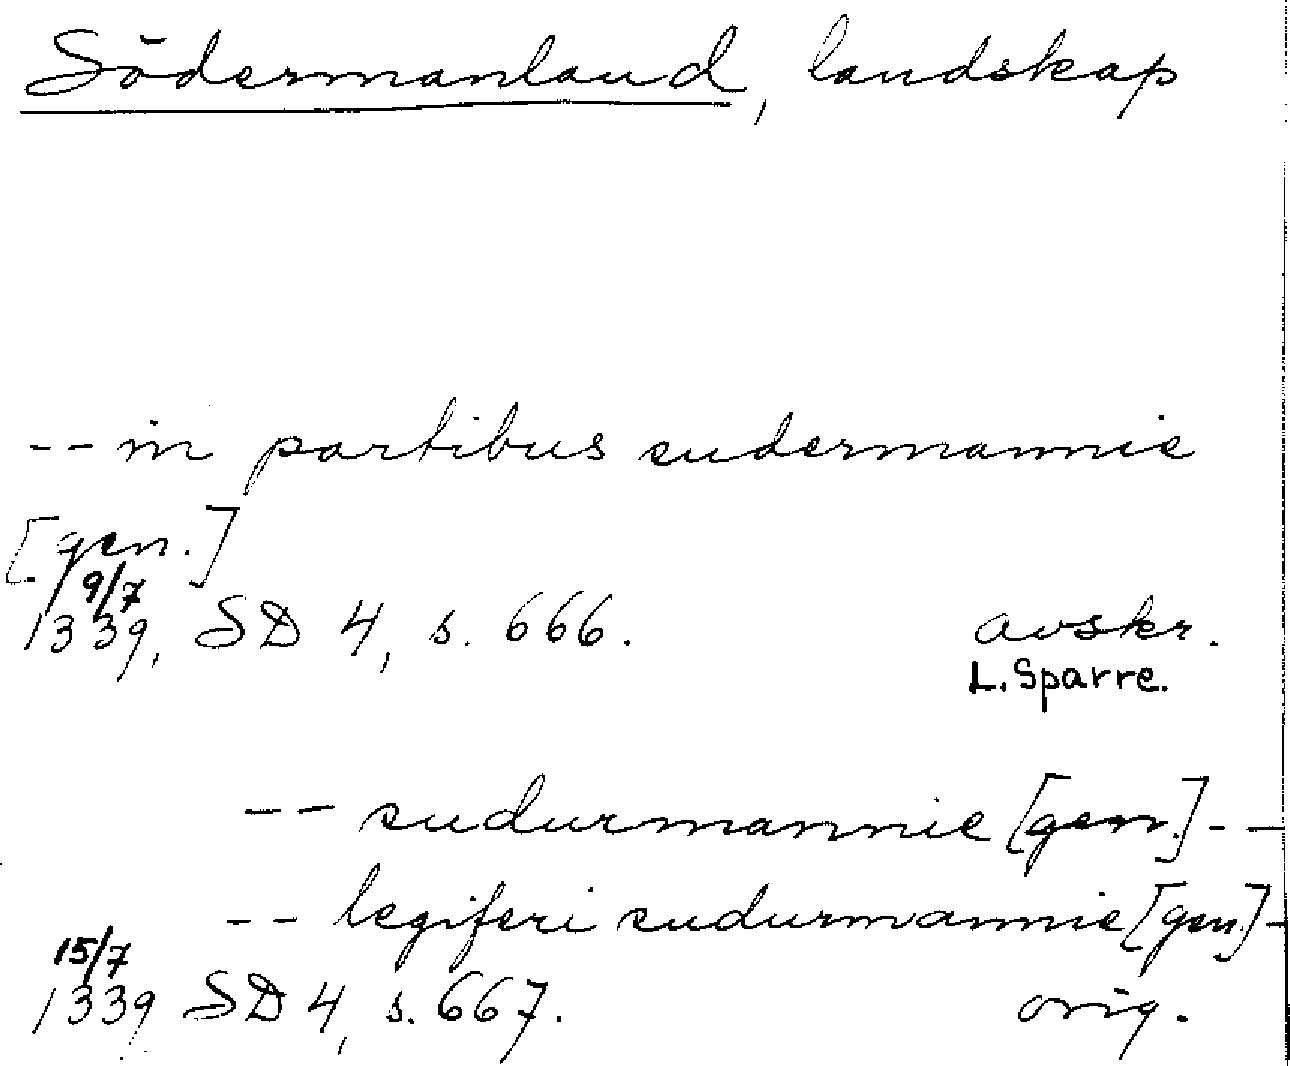 Södermanland, landskap
-- in partibus sudermannie
[gen.]
9/7
1339, SD 4, s. 666. avskr.
L. Sparre.
-- sudurmannie [gen.] --
-- legiferi sudurmannie [gen] -
15/7
1339 SD 4, s. 667. orig.